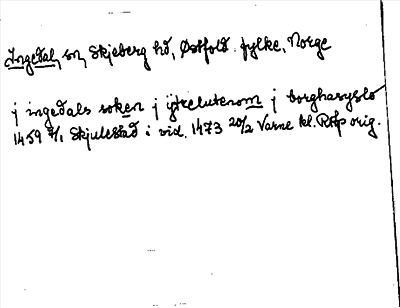 Ingedal sn, Skjeberg hd, Østfold fylke, Norge
j ingedals soken j ytreluterom j borghasyslo
1459 4/1 Skjulestad i vid. 1473 20/2 Varne kl. RAp orig.